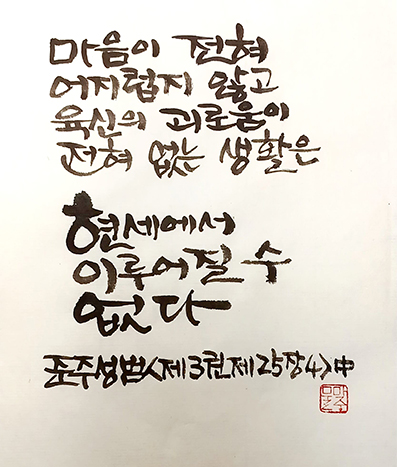 마음이 전혀
어지럽지 않고
육신의 괴로움이
전혀 없는 생활은
현세에서
이루어질 수
없다
준주성범<제3권제25장4>中